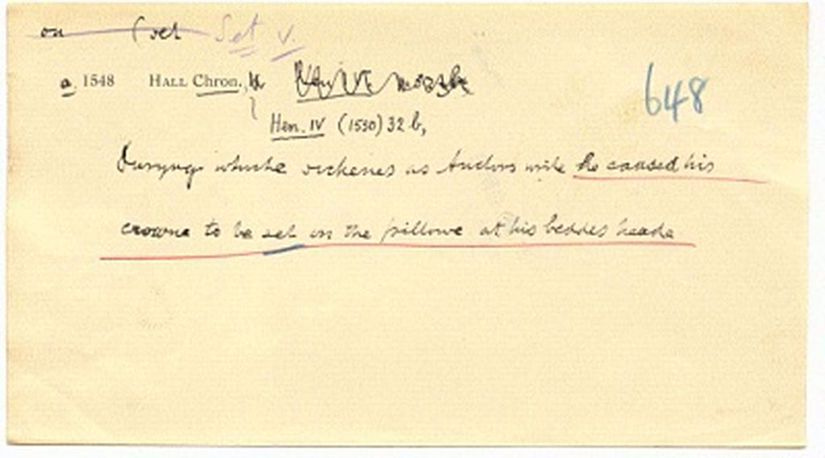 on (vel Set v.
a 1548 HALL Chron., 648
Hen. IV (1550) 32 b,
Duryng whiche sickenes as Auctors write he caused his
crowne to be set on the pillowe at his beddes heade